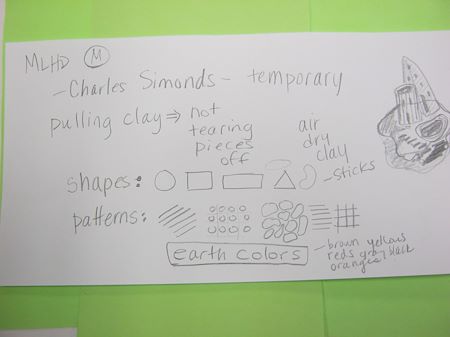 MLHD M
- Charles Simonds - temporary
pulling clay ⇒ not
tearing
pieces
off
air
dry
clay
shapes:
- sticks
patterns:
earth colors
- brown yellows
reds gray black
oranges